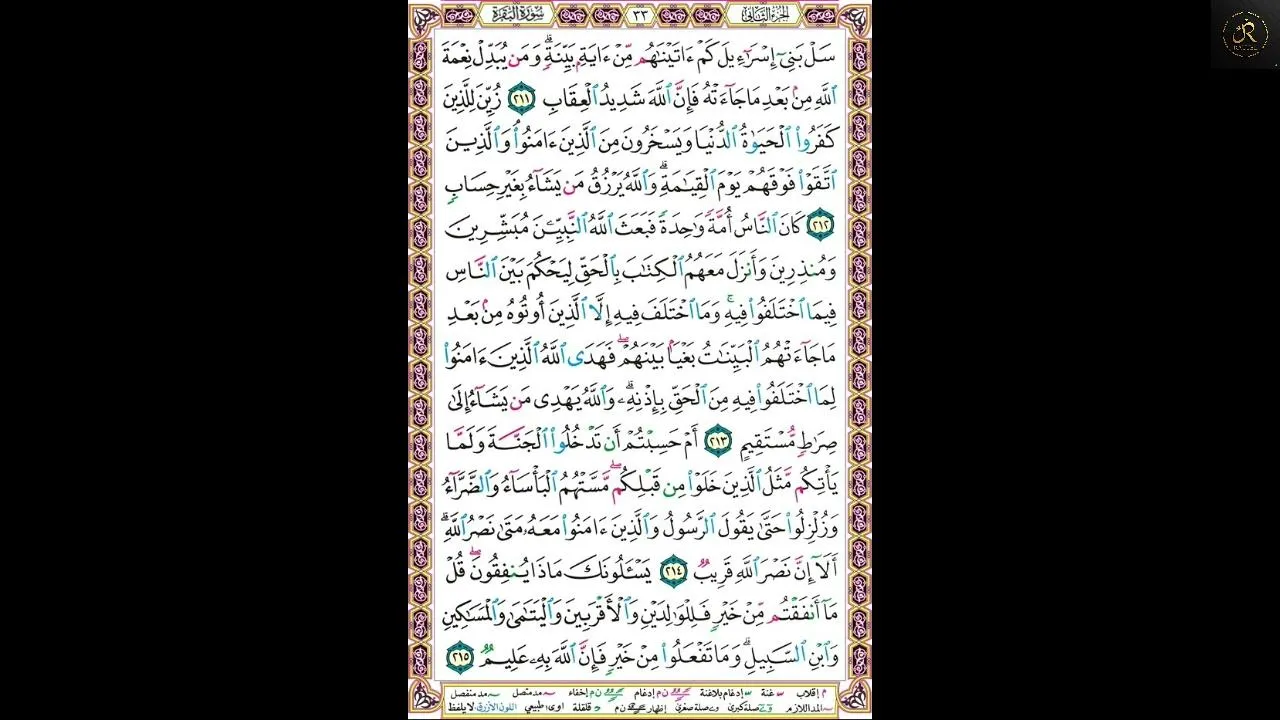 الجزء الثاني ٣٣ سورة البقرة
سَلۡ بَنِيٓ إِسۡرَٰٓءِيلَ كَمۡ ءَاتَيۡنَٰهُم مِّنۡ ءَايَةِۭ بَيِّنَةٖۗ وَمَن يُبَدِّلۡ نِعۡمَةَ
ٱللَّهِ مِنۢ بَعۡدِ مَا جَآءَتۡهُ فَإِنَّ ٱللَّهَ شَدِيدُ ٱلۡعِقَابِ ٢١١ زُيِّنَ لِلَّذِينَ
كَفَرُواْ ٱلۡحَيَوٰةُ ٱلدُّنۡيَا وَيَسۡخَرُونَ مِنَ ٱلَّذِينَ ءَامَنُواْۘ وَٱلَّذِينَ
ٱتَّقَوۡاْ فَوۡقَهُمۡ يَوۡمَ ٱلۡقِيَٰمَةِۗ وَٱللَّهُ يَرۡزُقُ مَن يَشَآءُ بِغَيۡرِ حِسَابٖ
٢١٢ كَانَ ٱلنَّاسُ أُمَّةٗ وَٰحِدَةٗ فَبَعَثَ ٱللَّهُ ٱلنَّبِيِّـۧنَ مُبَشِّرِينَ
وَمُنذِرِينَ وَأَنزَلَ مَعَهُمُ ٱلۡكِتَٰبَ بِٱلۡحَقِّ لِيَحۡكُمَ بَيۡنَ ٱلنَّاسِ
فِيمَا ٱخۡتَلَفُواْ فِيهِۚ وَمَا ٱخۡتَلَفَ فِيهِ إِلَّا ٱلَّذِينَ أُوتُوهُ مِنۢ بَعۡدِ
مَا جَآءَتۡهُمُ ٱلۡبَيِّنَٰتُ بَغۡيَۢا بَيۡنَهُمۡۖ فَهَدَى ٱللَّهُ ٱلَّذِينَ ءَامَنُواْ
لِمَا ٱخۡتَلَفُواْ فِيهِ مِنَ ٱلۡحَقِّ بِإِذۡنِهِۦۗ وَٱللَّهُ يَهۡدِي مَن يَشَآءُ إِلَىٰ
صِرَٰطٖ مُّسۡتَقِيمٍ ٢١٣ أَمۡ حَسِبۡتُمۡ أَن تَدۡخُلُواْ ٱلۡجَنَّةَ وَلَمَّا
يَأۡتِكُم مَّثَلُ ٱلَّذِينَ خَلَوۡاْ مِن قَبۡلِكُمۖ مَّسَّتۡهُمُ ٱلۡبَأۡسَآءُ وَٱلضَّرَّآءُ
وَزُلۡزِلُواْ حَتَّىٰ يَقُولَ ٱلرَّسُولُ وَٱلَّذِينَ ءَامَنُواْ مَعَهُۥ مَتَىٰ نَصۡرُ ٱللَّهِۗ
أَلَآ إِنَّ نَصۡرَ ٱللَّهِ قَرِيبٞ ٢١٤ يَسۡـَٔلُونَكَ مَاذَا يُنفِقُونَۖ قُلۡ
مَآ أَنفَقۡتُم مِّنۡ خَيۡرٖ فَلِلۡوَٰلِدَيۡنِ وَٱلۡأَقۡرَبِينَ وَٱلۡيَتَٰمَىٰ وَٱلۡمَسَٰكِينِ
وَٱبۡنِ ٱلسَّبِيلِۗ وَمَا تَفۡعَلُواْ مِنۡ خَيۡرٖ فَإِنَّ ٱللَّهَ بِهِۦ عَلِيمٞ ٢١٥
م إقلاب غنة إدغام بلاغنة ن م إدغام ن م إخفاء مد متصل مد منفصل
المد اللازم صلة كبرى صلة صغرى إظهار ن م قلقلة اوى طبيعي اللون الأزرق لا يلفظ